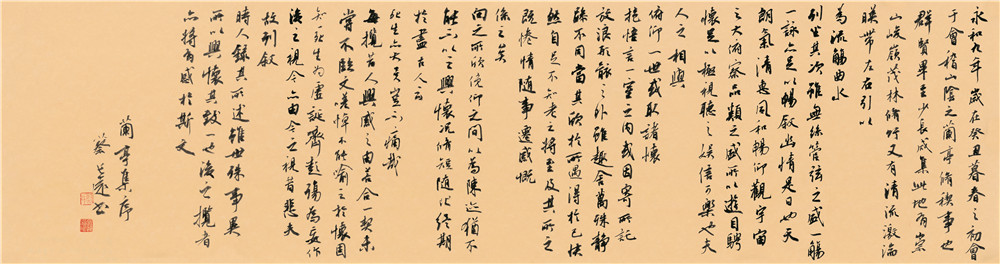 永和九年歲在癸丑暮春之初會
于會稽山陰之蘭亭脩禊事也
群賢畢至少長咸集此地有崇
山峻嶺茂林脩竹又有清流激湍
暎帶左右引以
為流觴曲水
列坐其次雖無絲管弦之盛一觴
一詠亦足以暢敘幽情是日也天
朗氣清惠風和暢仰觀宇宙
之大俯察品類之盛所以遊目騁
懷足以極視聽之娛信可樂也夫
人之相與
俯仰一世或取諸懷
抱悟言一室之內或因寄所託
放浪形骸之外雖趣舍萬殊靜
躁不同當其欣於所遇得於己快
然自足不知老之將至及其所之
既惓情隨事遷感慨
係之矣
向之所欣俛仰之間以為陳迹猶不
能不以之興懷況脩短隨化終期
於盡古人云
死生亦大矣豈不痛哉
每攬昔人興感之由若合一契未
嘗不臨文嗟悼不能喻之於懷固
知一死生為虛誕齊彭殤為妄作
後之視今亦由今之視昔悲夫
故列敘
時人錄其所述雖世殊事異
所以興懷其致一也後之攬者
亦將有感於斯文
蘭亭集序
蔡 書